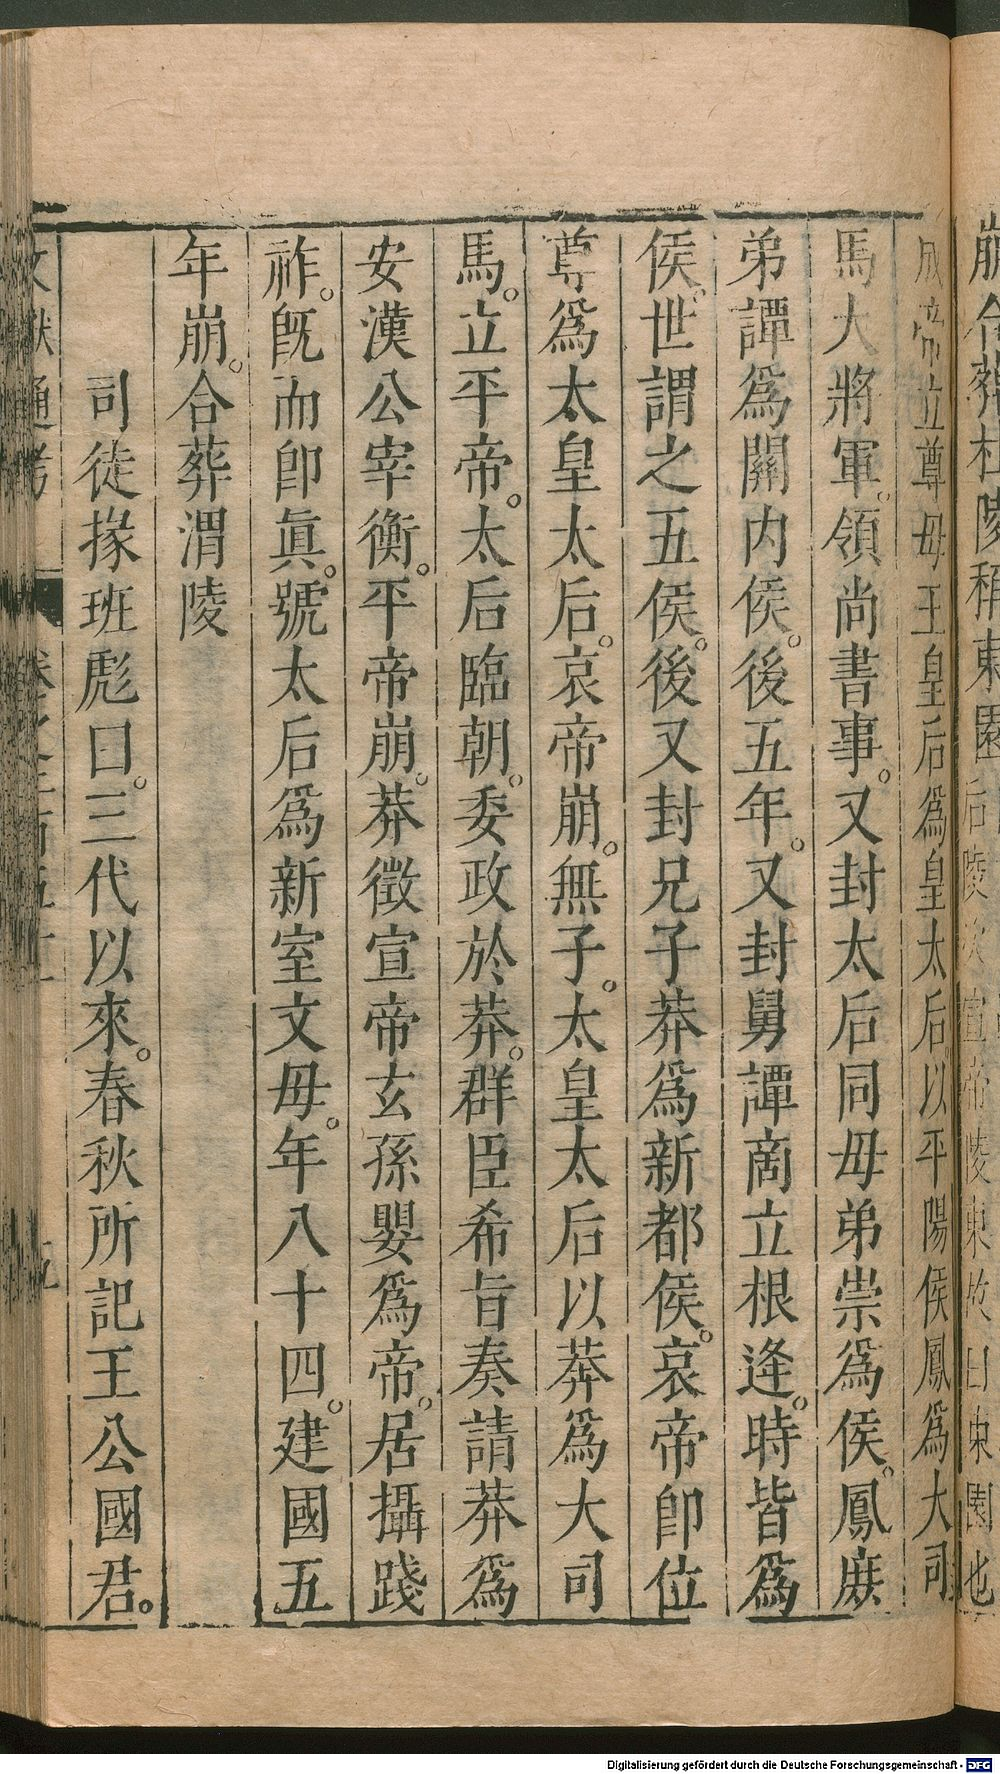 崩合葬杜陵稱東園后陵次宣帝陵東故曰東園也
成帝立尊母王皇后為皇太后以平陽侯鳳為大司
馬大將軍。領尚書事。又封太后同母弟崇為侯。鳳庶
弟譚為關内侯。後五年。又封舅譚商立根逢。時皆為
侯。世謂之五侯。後又封兄子莽為新都侯。哀帝卽位
尊為太皇太后。哀帝崩。無子。太皇太后以莽為大司
馬。立平帝。太后臨朝。委政於莽。群臣希旨奏請莽為
安漢公宰衡。平帝崩。莽徵宣帝玄孫嬰為帝。居攝踐
祚。旣而卽眞。號太后為新室文母。年八十四。建國五
年崩。合葬渭陵
司徒掾班彪曰。三代以來。春秋所記王公國君。
文獻通考
Digitalisierung gefördert durch die Deutsche Forschungsgemeinschaft - DFG